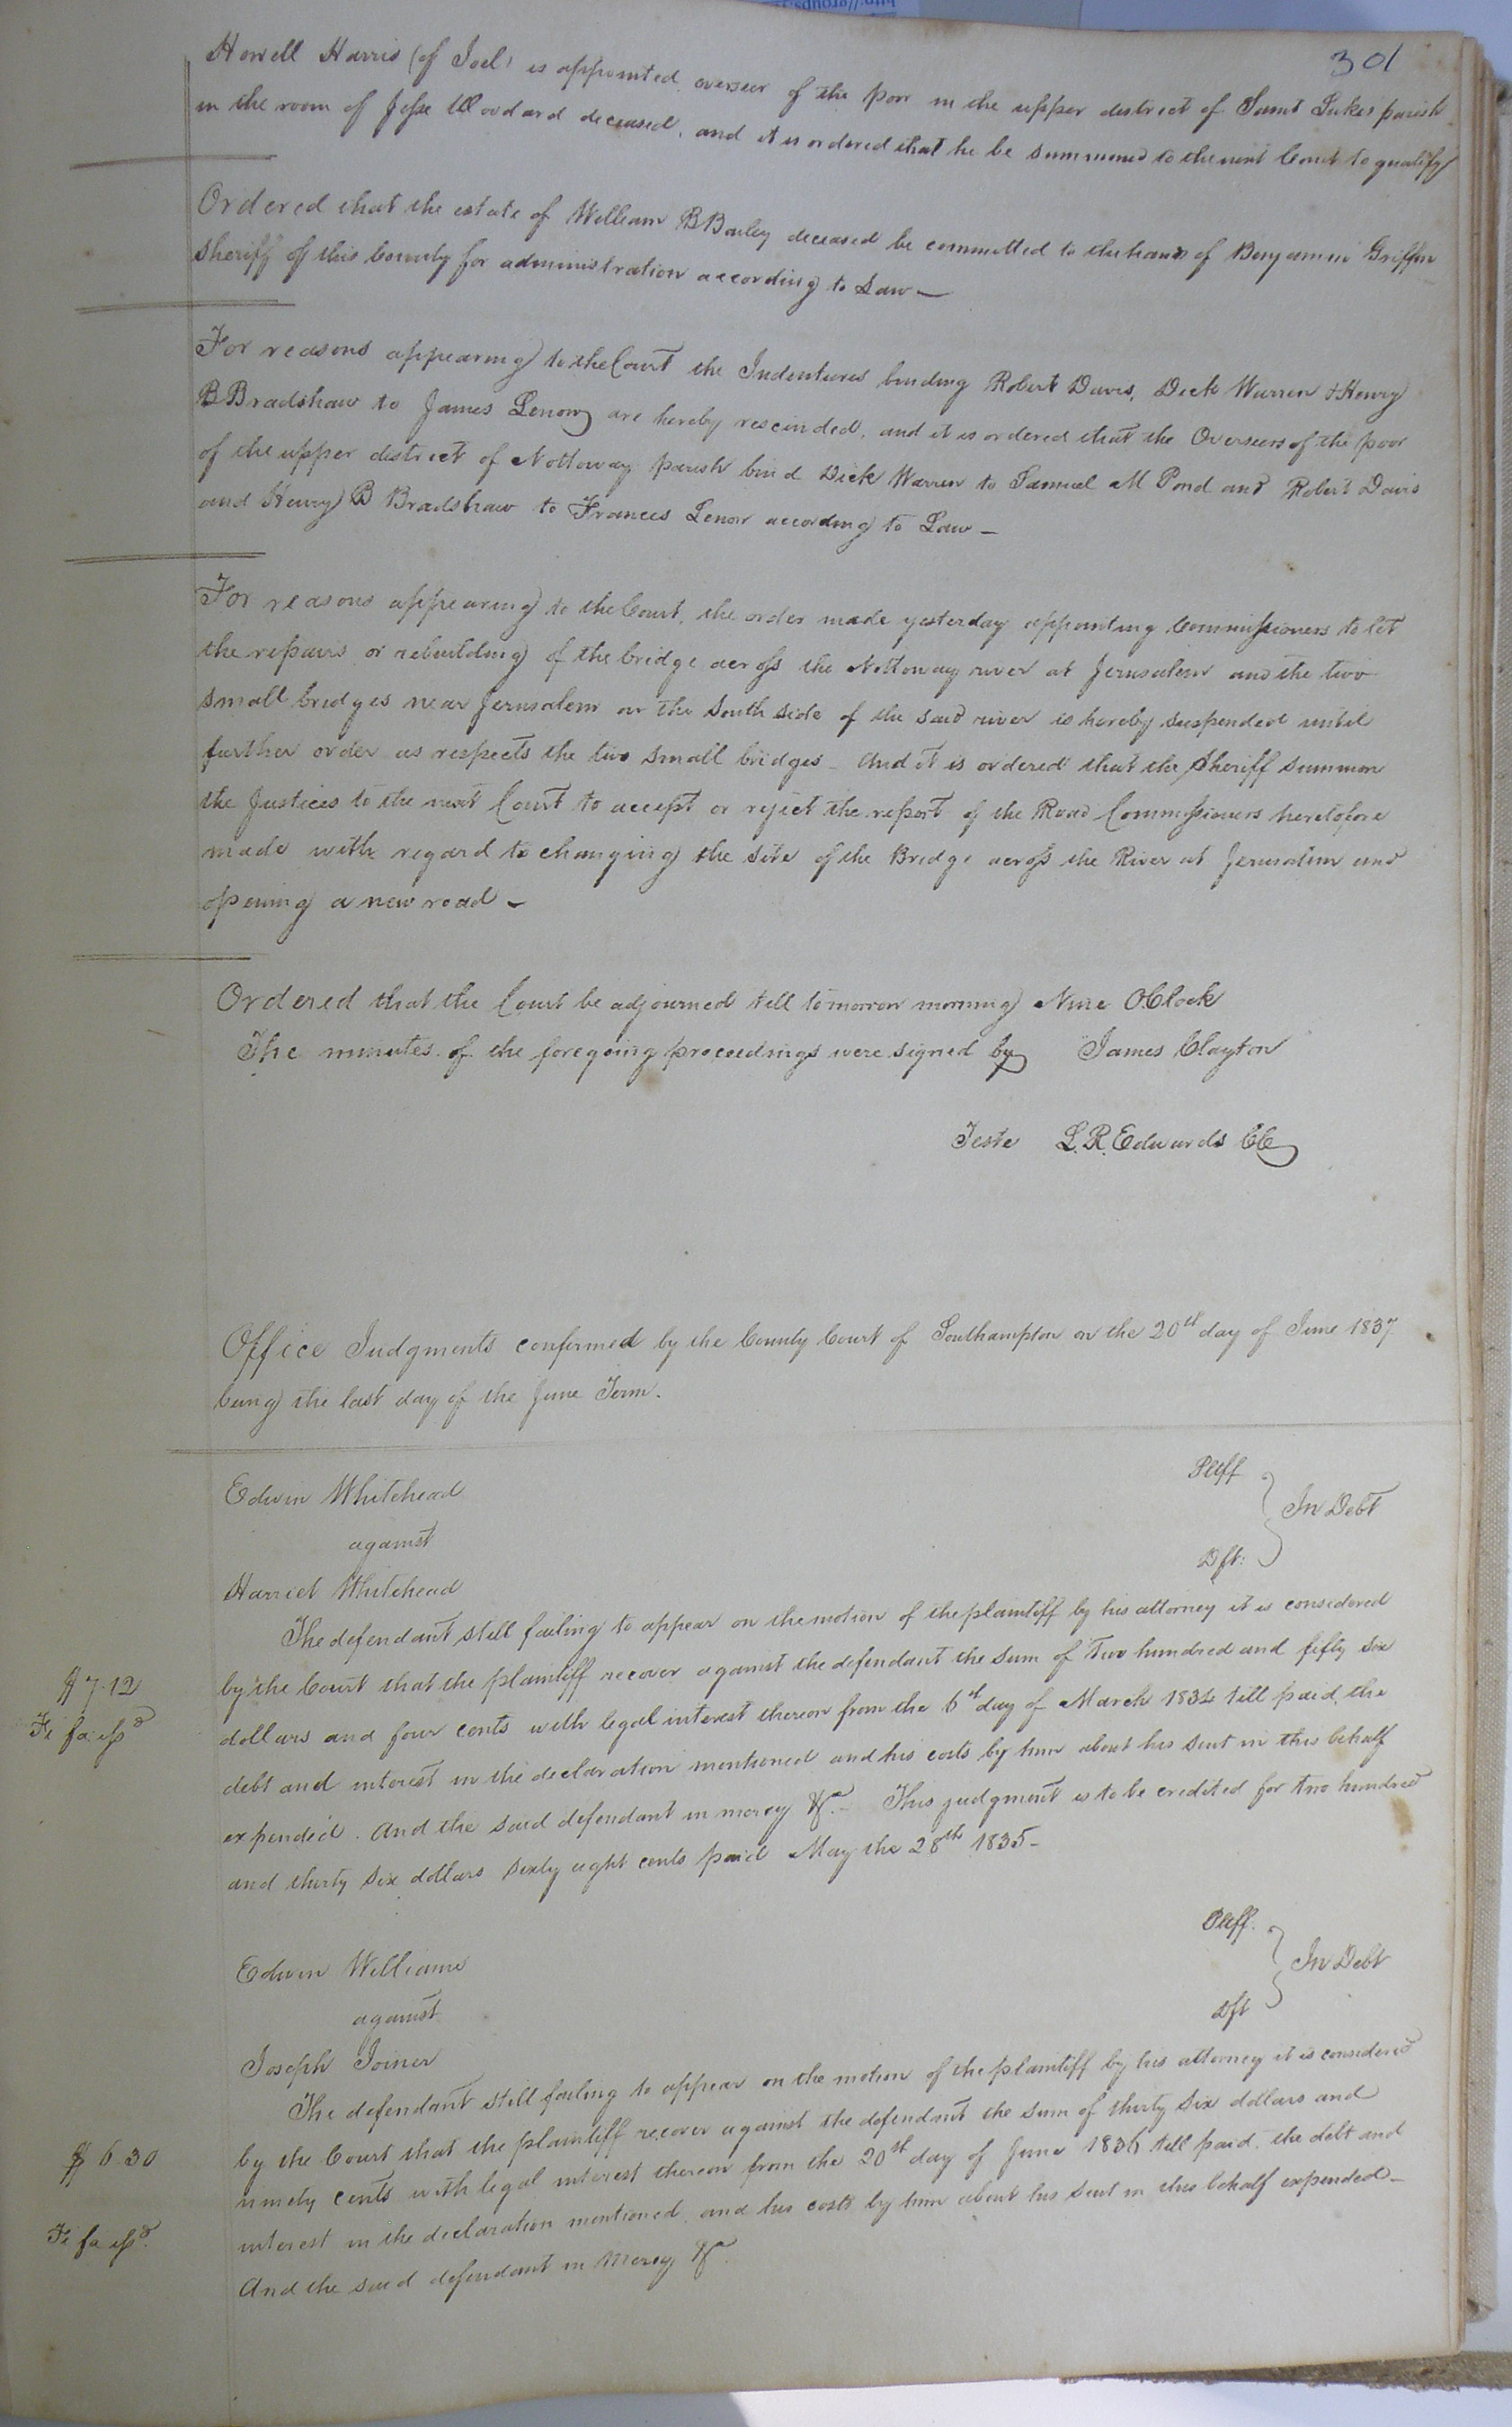 301
Howell Harris (of Joel) is appointed overseer of the poor in the upper district of Saint Lukes parish
in the room of Jesse Woodard deceased, and it is ordered that he be summoned to the next Court to qualify
Ordered that the estate of William B Bailey deceased be committed to the hands of Benjamin Griffin
Sheriff of this County for administration according to Law —
For reasons appearing to the Court the Indentures binding Robert Davis, Dick Warren & Henry
B Bradshaw to James Lenow are hereby rescinded, and it is ordered that the Overseers of the poor
of the upper district of Nottoway parish bind Dick Warren to Samuel M Pond and Robert Davis
and Henry B Bradshaw to Frances Lenow according to Law —
For reasons appearing to the Court, the order made yesterday appointing Commissioners to let
the repairs or rebuilding of the bridge across the Nottoway river at Jerusalem and the two
small bridges near Jerusalem on the South side of the said river is hereby suspended until
further order as respects the two small bridges – And it is ordered that the Sheriff summon
the Justices to the next Court to accept or reject the report of the Road Commissioners heretofore
made with regard to changing the site of the Bridge across the River at Jerusalem and
opening a new road –
Ordered that the Court be adjourned till tomorrow morning Nine OClock
The minutes of the foregoing proceedings were signed by James Clayton
Teste L. R. Edwards CC
Office Judgments confirmed by the County Court of Southampton on the 20th day of June 1837
being the last day of the June Term.
Edwin Whitehead Pltff
against In Debt
Harriet Whitehead Dft:
The defendant still failing to appear on the motion of the plaintiff by his attorney it is considered
by the Court that the plaintiff recover against the defendant the sum of Two hundred and fifty six
$7.12
dollars and four cents with legal interest thereon from the 6th day of March 1834 till paid, the
Fi fa issd
debt and interest in the declaration mentioned and his costs by him about his suit in this behalf
expended. And the said defendant in mercy &c. – This judgment is to be credited for two hundred
and thirty six dollars sixty eight cents paid May the 28th 1835 –
Edwin Williams Pltff.
against In Debt
Joseph Joiner Dft
The defendant still failing to appear on the motion of the plaintiff by his attorney it is considered
by the Court that the plaintiff recover against the defendant the sum of thirty six dollars and
$6.30
ninety cents with legal interest thereon from the 20th day of June 1836 till paid, the debt and
interest in the declaration mentioned, and his costs by him about his suit in this behalf expended –
Fi fa issd.
And the said defendant in Mercy &c.